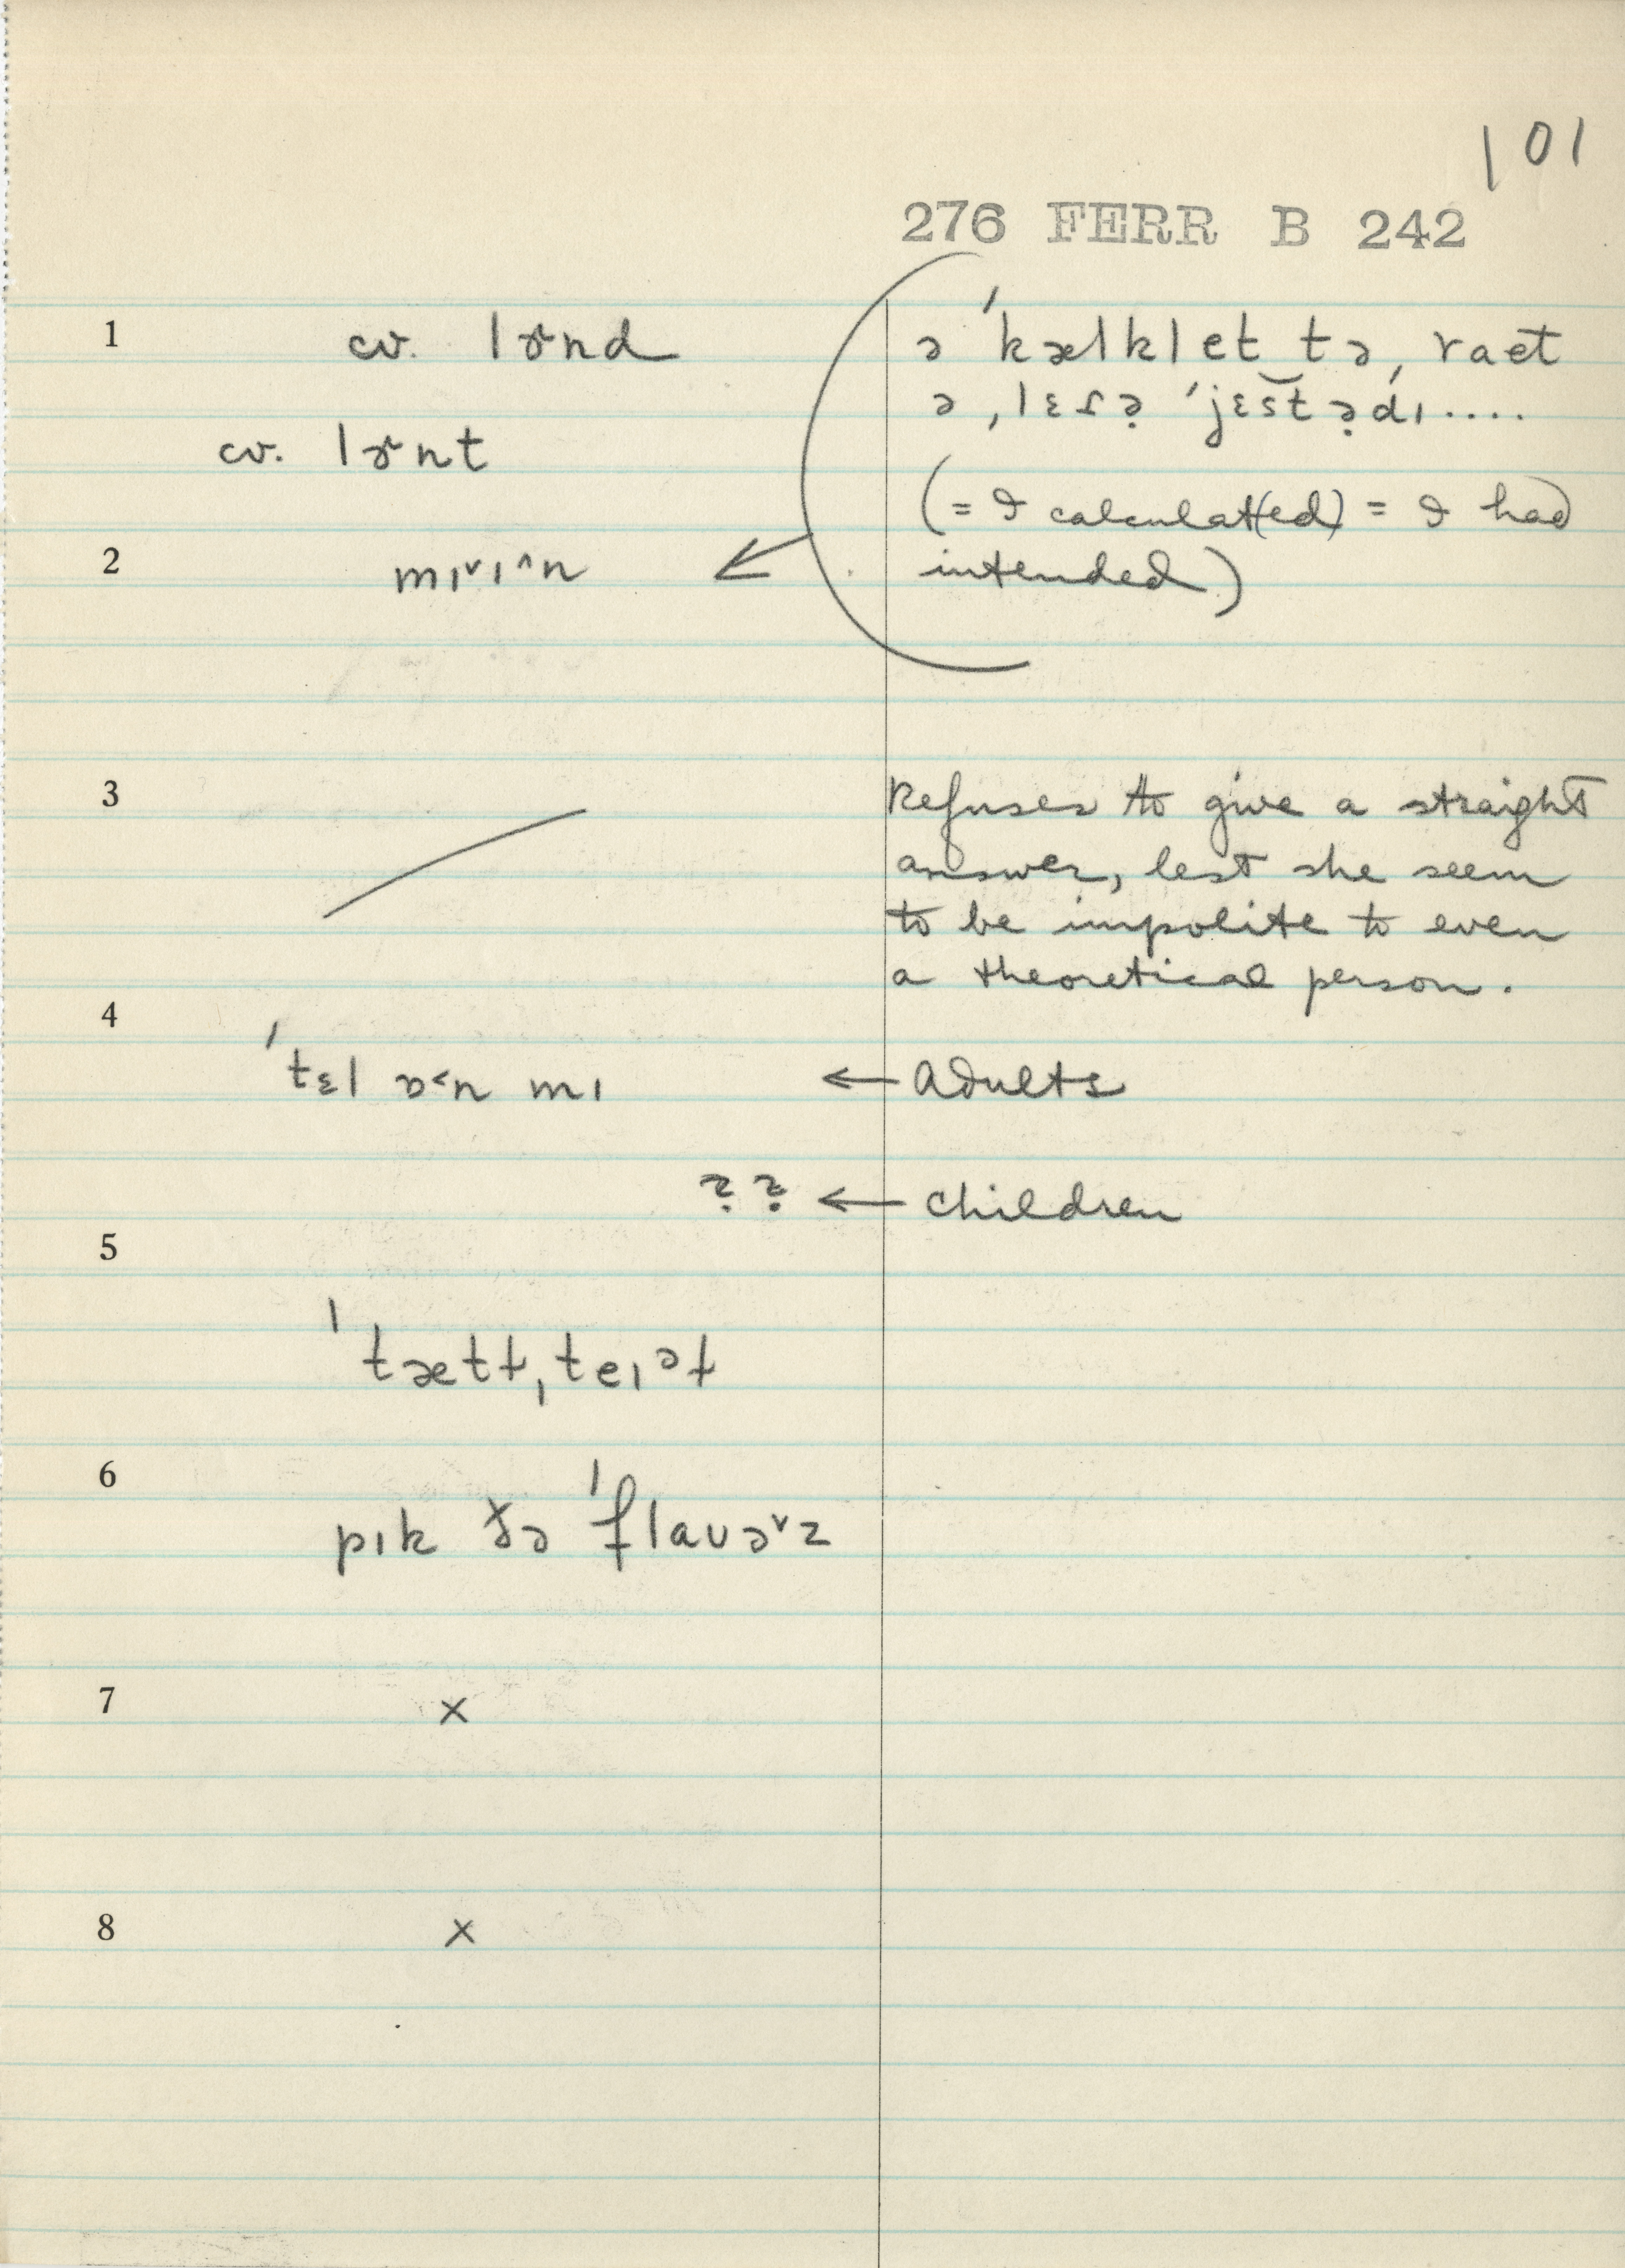 101
276 FERR B 242
1
cv. lɚnd
cv. lɚnt
ə ˈkælklet tə ˌraet
ə ˌlɛɾə̣ ˈjɛst ə̣dɪ....
(= I calculat(ed) = I had
intended)
2
mɪ˅ɪ^n ←
3
Refuses to give a straight
answer, lest she seem
to be impolite to even
a theoretical person.
4
ˈtɛl ɒ<n mɪ ← Adults
?? ← children
5
ˈtætɫˌteɪᵊɫ
6
pɪk ðə ˈflaʊə˞z
7
×
8
×